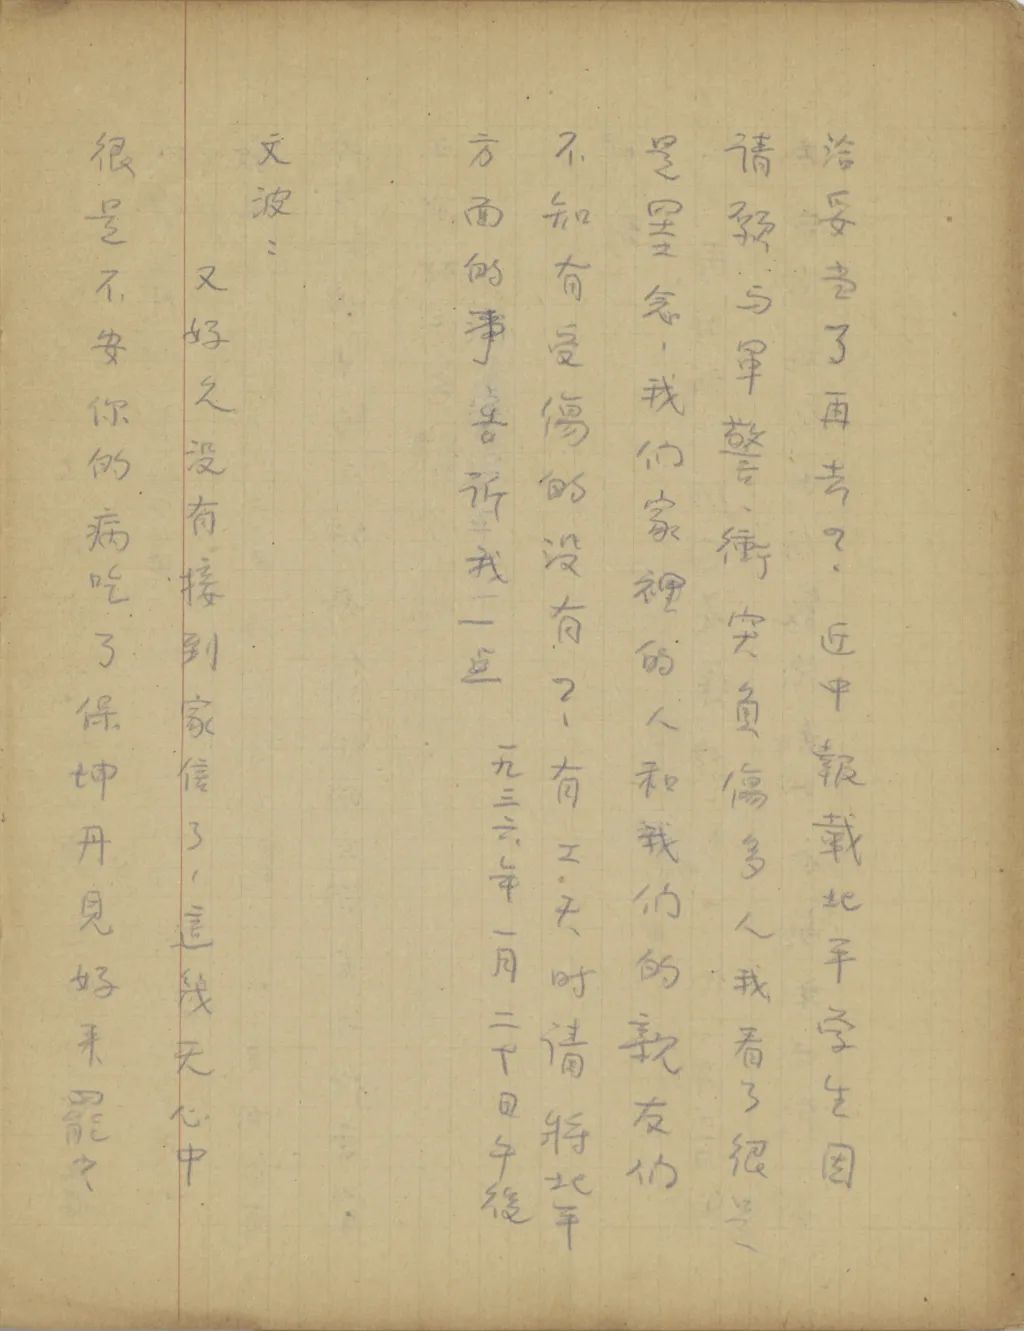 洽妥当了再去?.近中報載北平学生因
请预与軍警、衝突負傷多人我看了很是、
是里念,我们家裡的人和我们的親友们
不知有受傷的没有?,有工夫时请將北平
方面的事告訴我一点
一九三六年一月二十日午後
文波:
又好久没有接到家信了,這幾天心中
很是不安你的病吃了保坤丹見好来罷